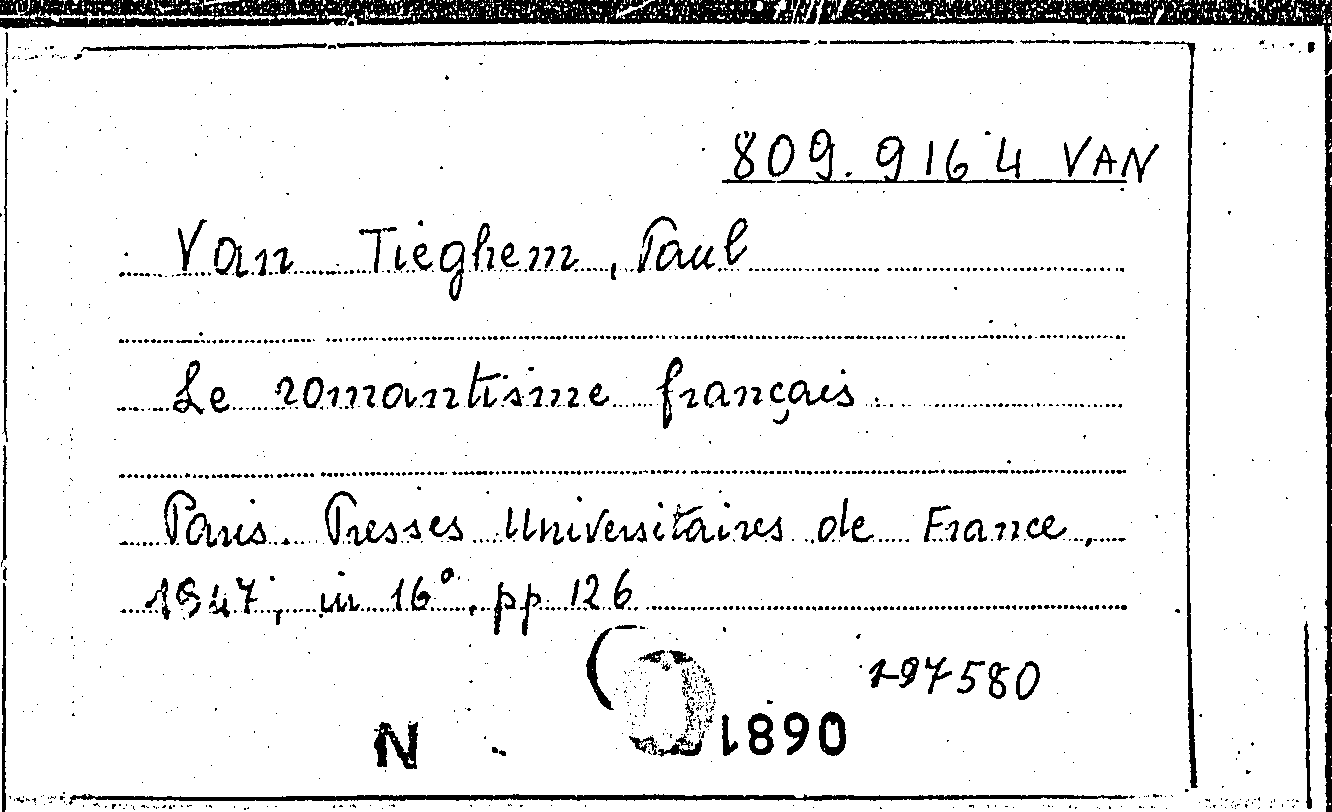 809.9164 VAN
Van Tieghem, Paul
Le romantisme français.
Paris. Presses Universitaires de France,
1947, in 16°, pp 126
197580
N 1890